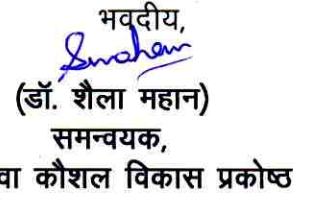 भवदीय,
Smahan
(डॉ. शैला महान)
समन्वयक,
वा कौशल विकास प्रकोष्ठ